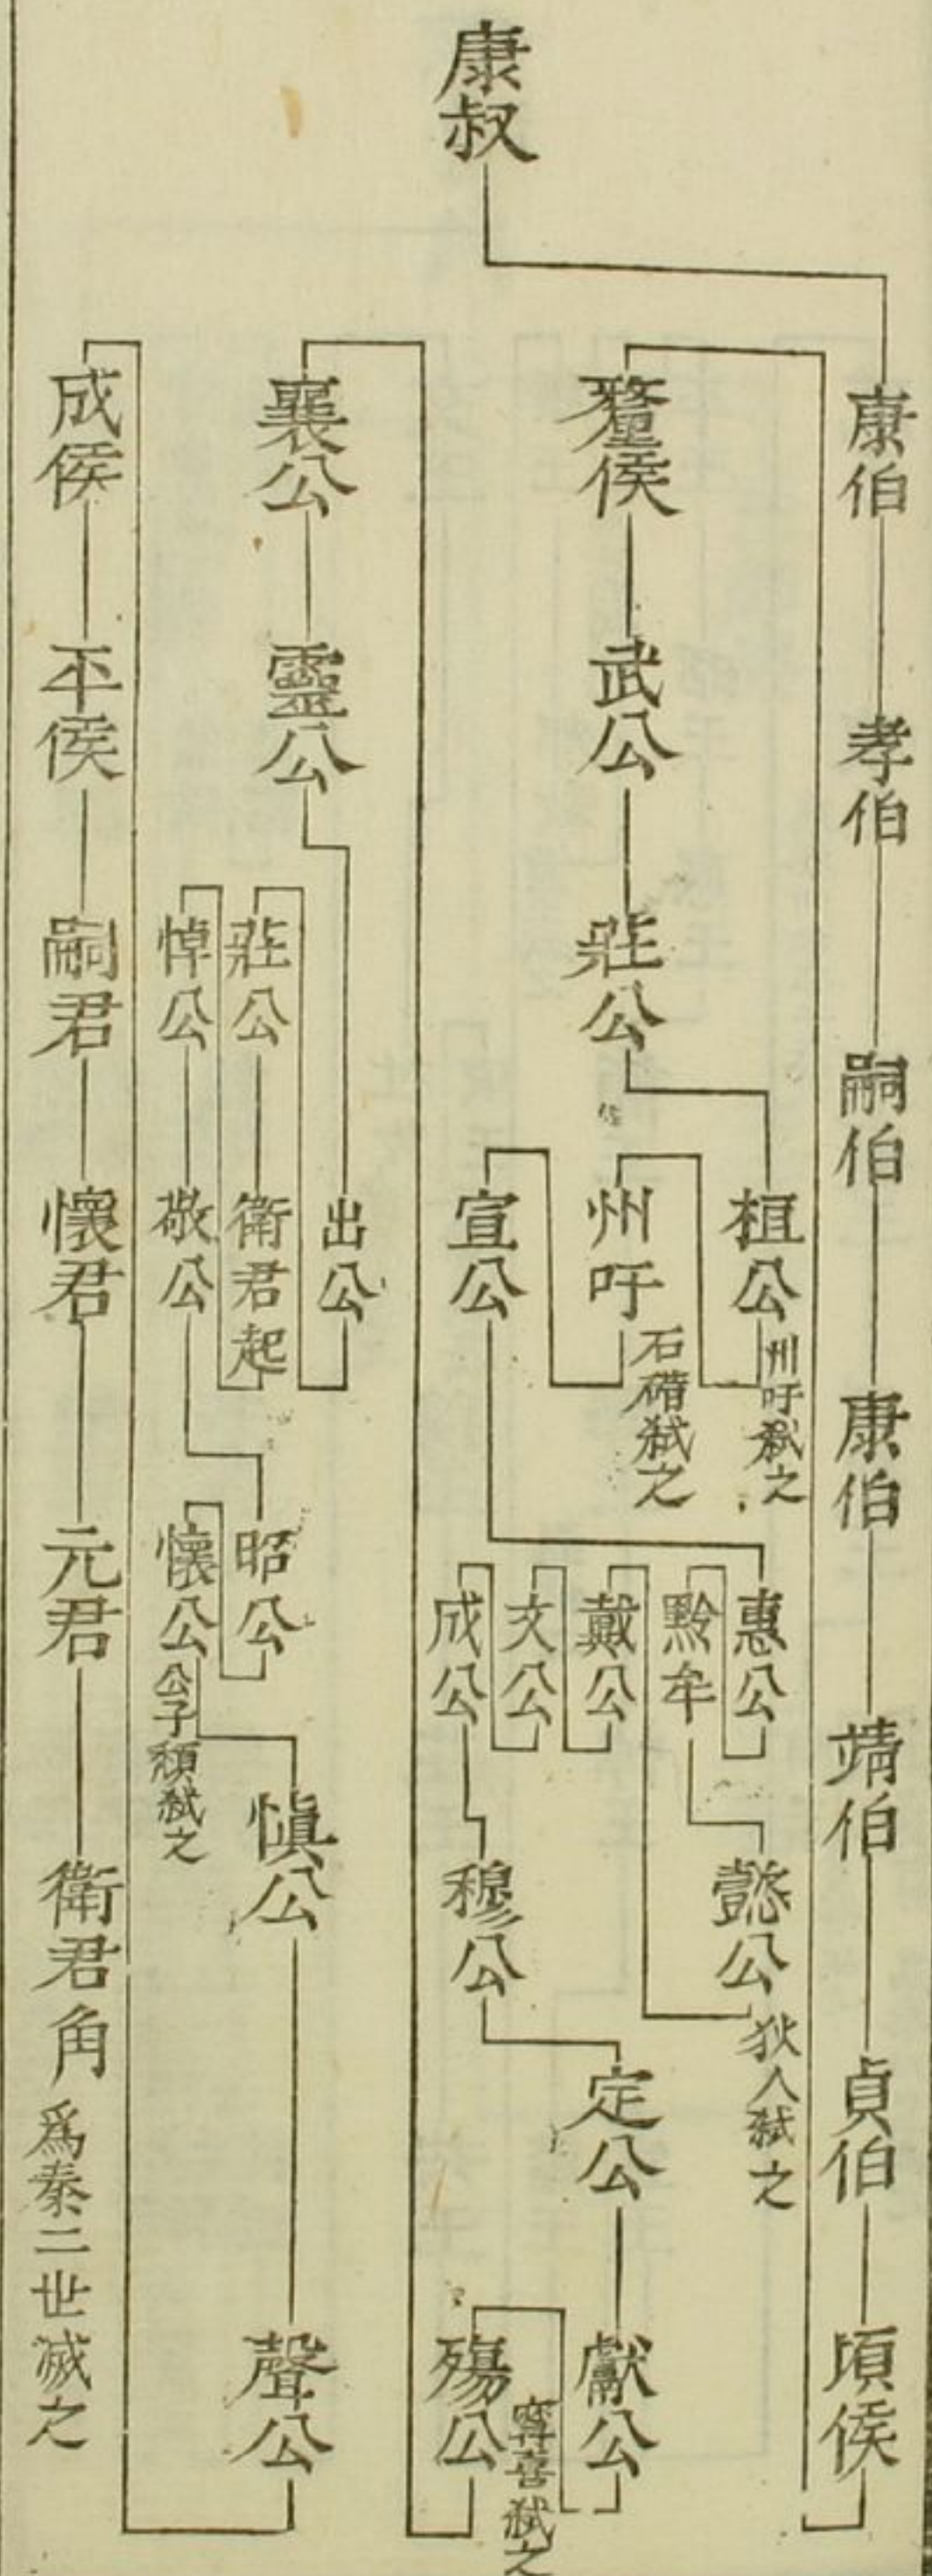 康叔
康伯
孝伯
嗣伯
康伯
靖伯
貞伯
頃侯
釐侯
武公
莊公
桓公
州吁弒之
州吁
石碏弒之
宣公
惠公
黔牟
懿公
狄人弒之
戴公
文公
成公
穆公
定公
獻公
殤公
甯喜弒之
襄公
靈公
出公
莊公
衛君起
悼公
敬公
昭公
懷公
公子頹弒之
慎公
聲公
成侯
平侯
嗣君
懷君
元君
衛君角
爲秦二世滅之